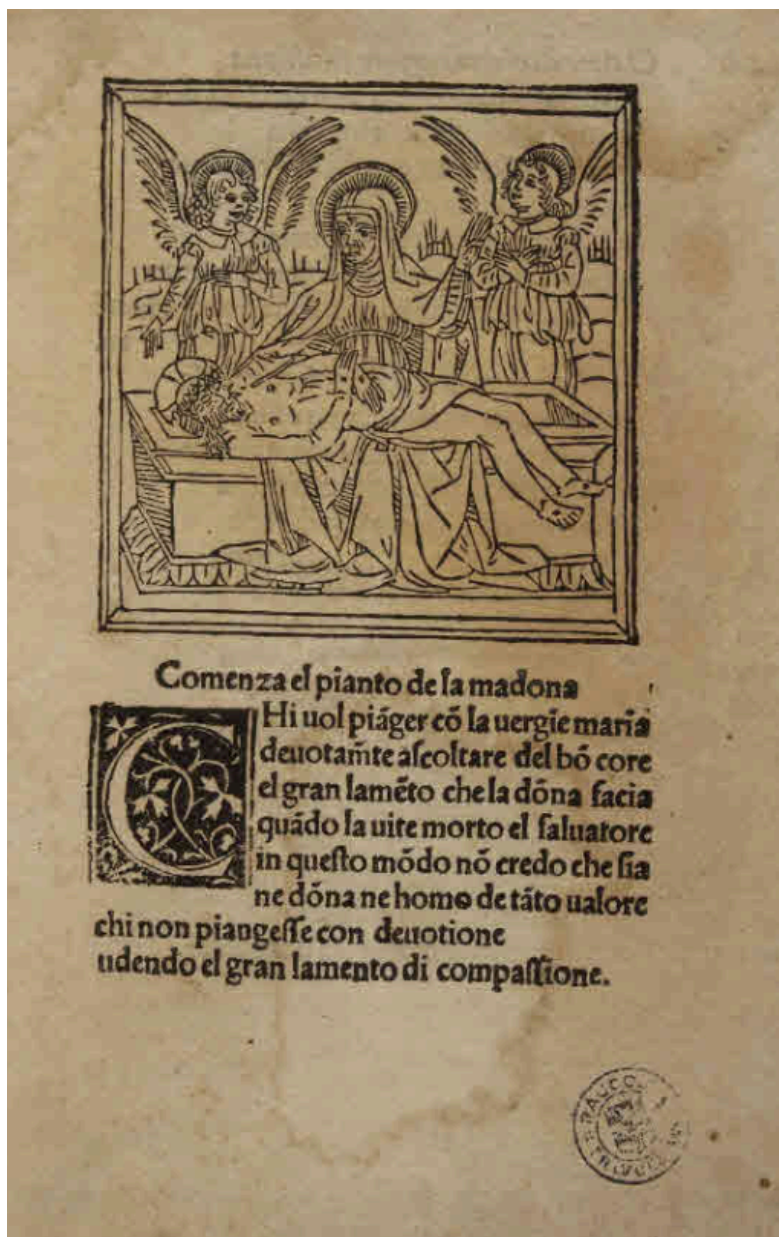 Comenza el pianto de la madona
CHi uol piãger cõ la uergie maria
deuotam̃te aſcoltare del bõ core
el gran lamẽto che la dõna facia
quãdo la uite morto el ſaluatore
in queſto mõdo nõ credo che ſia
ne dõna ne homo de tãto ualore
chi non piangeſſe con deuotione
udendo el gran lamento di compaſſione.